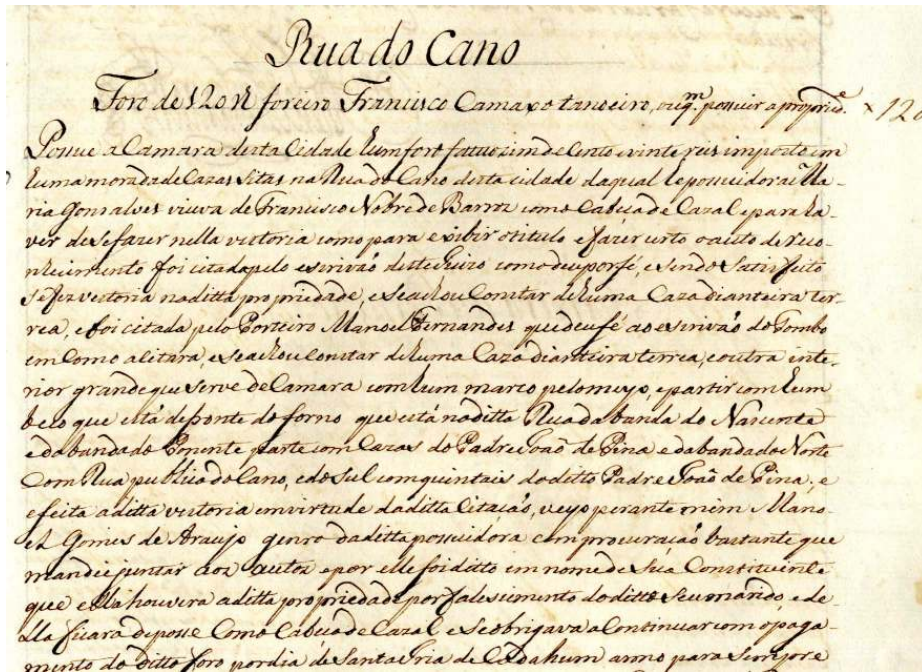 Rua do Cano
Foro de 120 rs foreiro Francisco Camaxo tanoeiro, ou q.m possuir a propried.e x 120
Possue a Camara desta Cidade hum foro fatuozim de Cento e vinte reis imposto em
huma morada de Cazas sitas na Rua do Cano desta cidade da qual he possuidora Ma-
ria Gonsalves viuva de Francisco Nobre de Barros como Cabeça de Cazal e para ha-
ver de se fazer nella vestoria como para exibir o titulo e fazer o auto de reco-
nhecimento foi citada pelo escrivão deste Juizo como deu por fé, e sendo satisfeito
se fes vestoria na ditta propriedade, e se achou Constar de huma Caza dianteira ter-
rea, e foi citada pelo Porteiro Manoel Fernandes que deu fé ao escrivão do Tombo
em Como a citara, e se achou constar de huma Caza dianteira terrea, e outra inte-
rior grande que serve de Camara com hum marco pelo meyo, e partir com hum
beco que está defronte do forno que está na ditta Rua da banda do Nascente
e da banda do Poente parte com Cazas do Padre João de Pina e da banda do Norte
Com Rua publica do Cano, e do Sul com quintais do ditto Padre João de Pina, e
e feita a ditta vestoria em virtude da ditta Citação, veyo perante mim Mano-
el Gomes de Araujo genro da ditta possuidora com procuração bastante que
mandei juntar aos autos e por elle foi ditto em nome de sua Constituinte
que ella houvera a ditta propriedade por falesimento do ditto seu marido, e de-
lla ficara de posse Como Cabeça de Cazal e se obrigava a Continuar com o paga-
mento do ditto foro por dia de Santa Maria de Cada hum anno para sempre